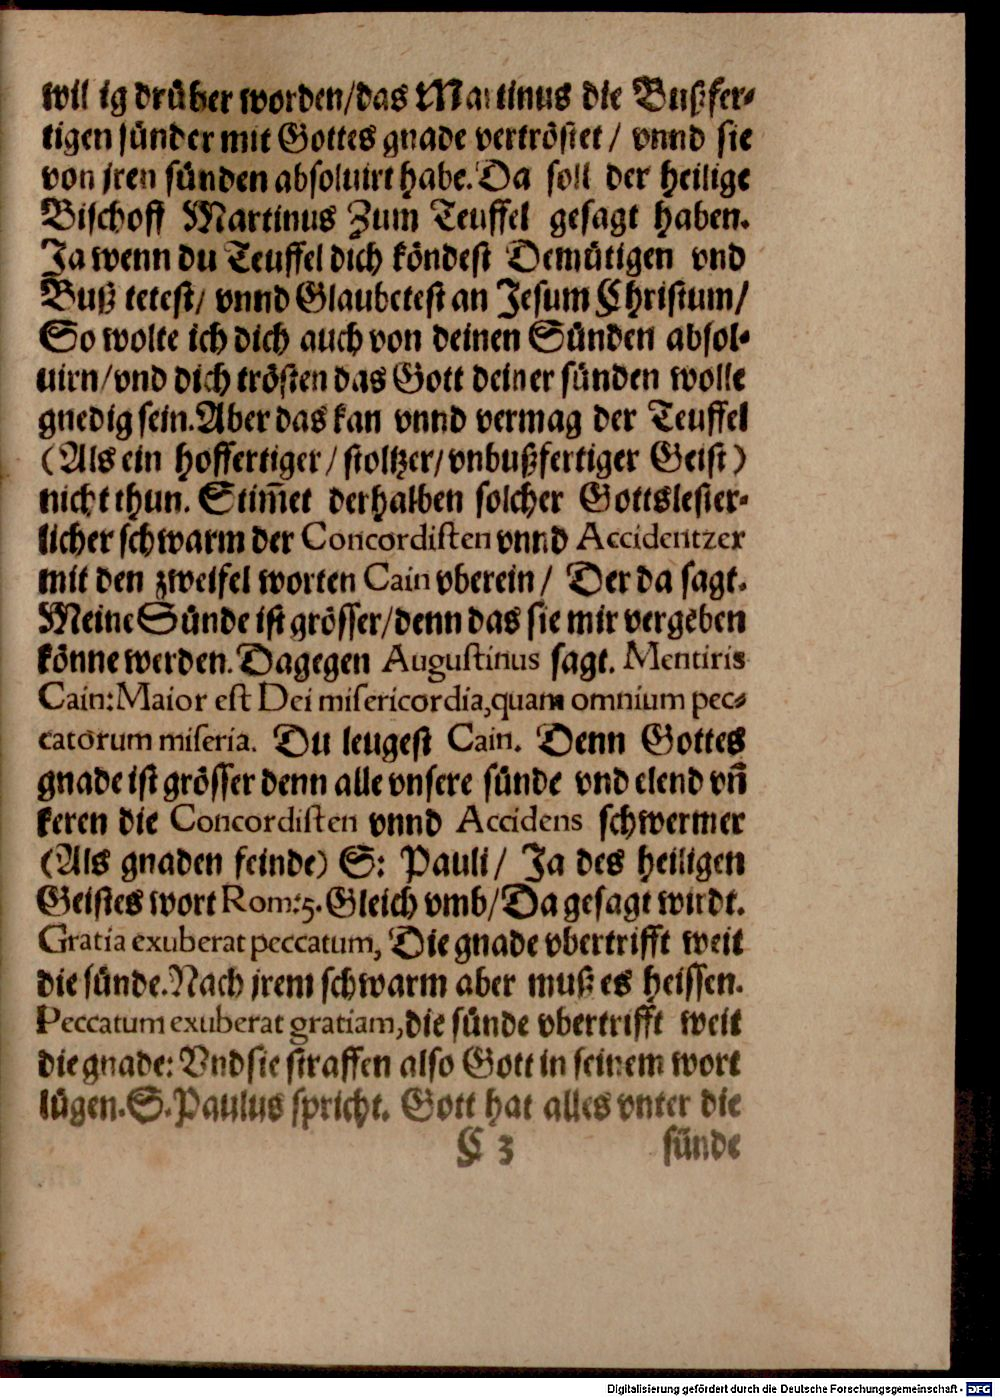 wil ig drüber worden/das Martinus die Bußfer-
tigen sünder mit Gottes gnade vertröstet / vnnd sie
von jren sünden absoluirt habe. Da soll der heilige
Bischoff Martinus Zum Teuffel gesagt haben.
Ja wenn du Teuffel dich köndest Demütigen vnd
Buß tetest/ vnnd Glaubetest an Jesum Christum/
So wolte ich dich auch von deinen Sünden absol-
uirn/vnd dich trösten das Gott deiner sünden wolle
gnedig sein. Aber das kan vnnd vermag der Teuffel
(Als ein hoffertiger / stoltzer/ vnbußfertiger Geist)
nicht thun. Stim̃et derhalben solcher Gottslester-
licher schwarm der Concordisten vnnd Accidentzer
mit den zweifel worten Cain vberein / Der da sagt.
Meine Sünde ist grösser/denn das sie mir vergeben
könne werden. Dagegen Augustinus sagt. Mentiris
Cain: Maior est Dei misericordia, quam omnium pec-
catorum miseria. Du leugest Cain. Denn Gottes
gnade ist grösser denn alle vnsere sünde vnd elend vñ
keren die Concordisten vnnd Accidens schwermer
(Als gnaden feinde) S: Pauli / Ja des heiligen
Geistes wort Rom: 5. Gleich vmb/ Da gesagt wirdt.
Gratia exuberat peccatum, Die gnade vbertrifft weit
die sünde. Nach jrem schwarm aber muß es heissen.
Peccatum exuberat gratiam, die sünde vbertrifft weit
die gnade: Vnd sie straffen also Gott in seinem wort
lügen. S. Paulus spricht. Gott hat alles vnter die
C 3 sünde
Digitalisierung gefördert durch die Deutsche Forschungsgemeinschaft - DFG